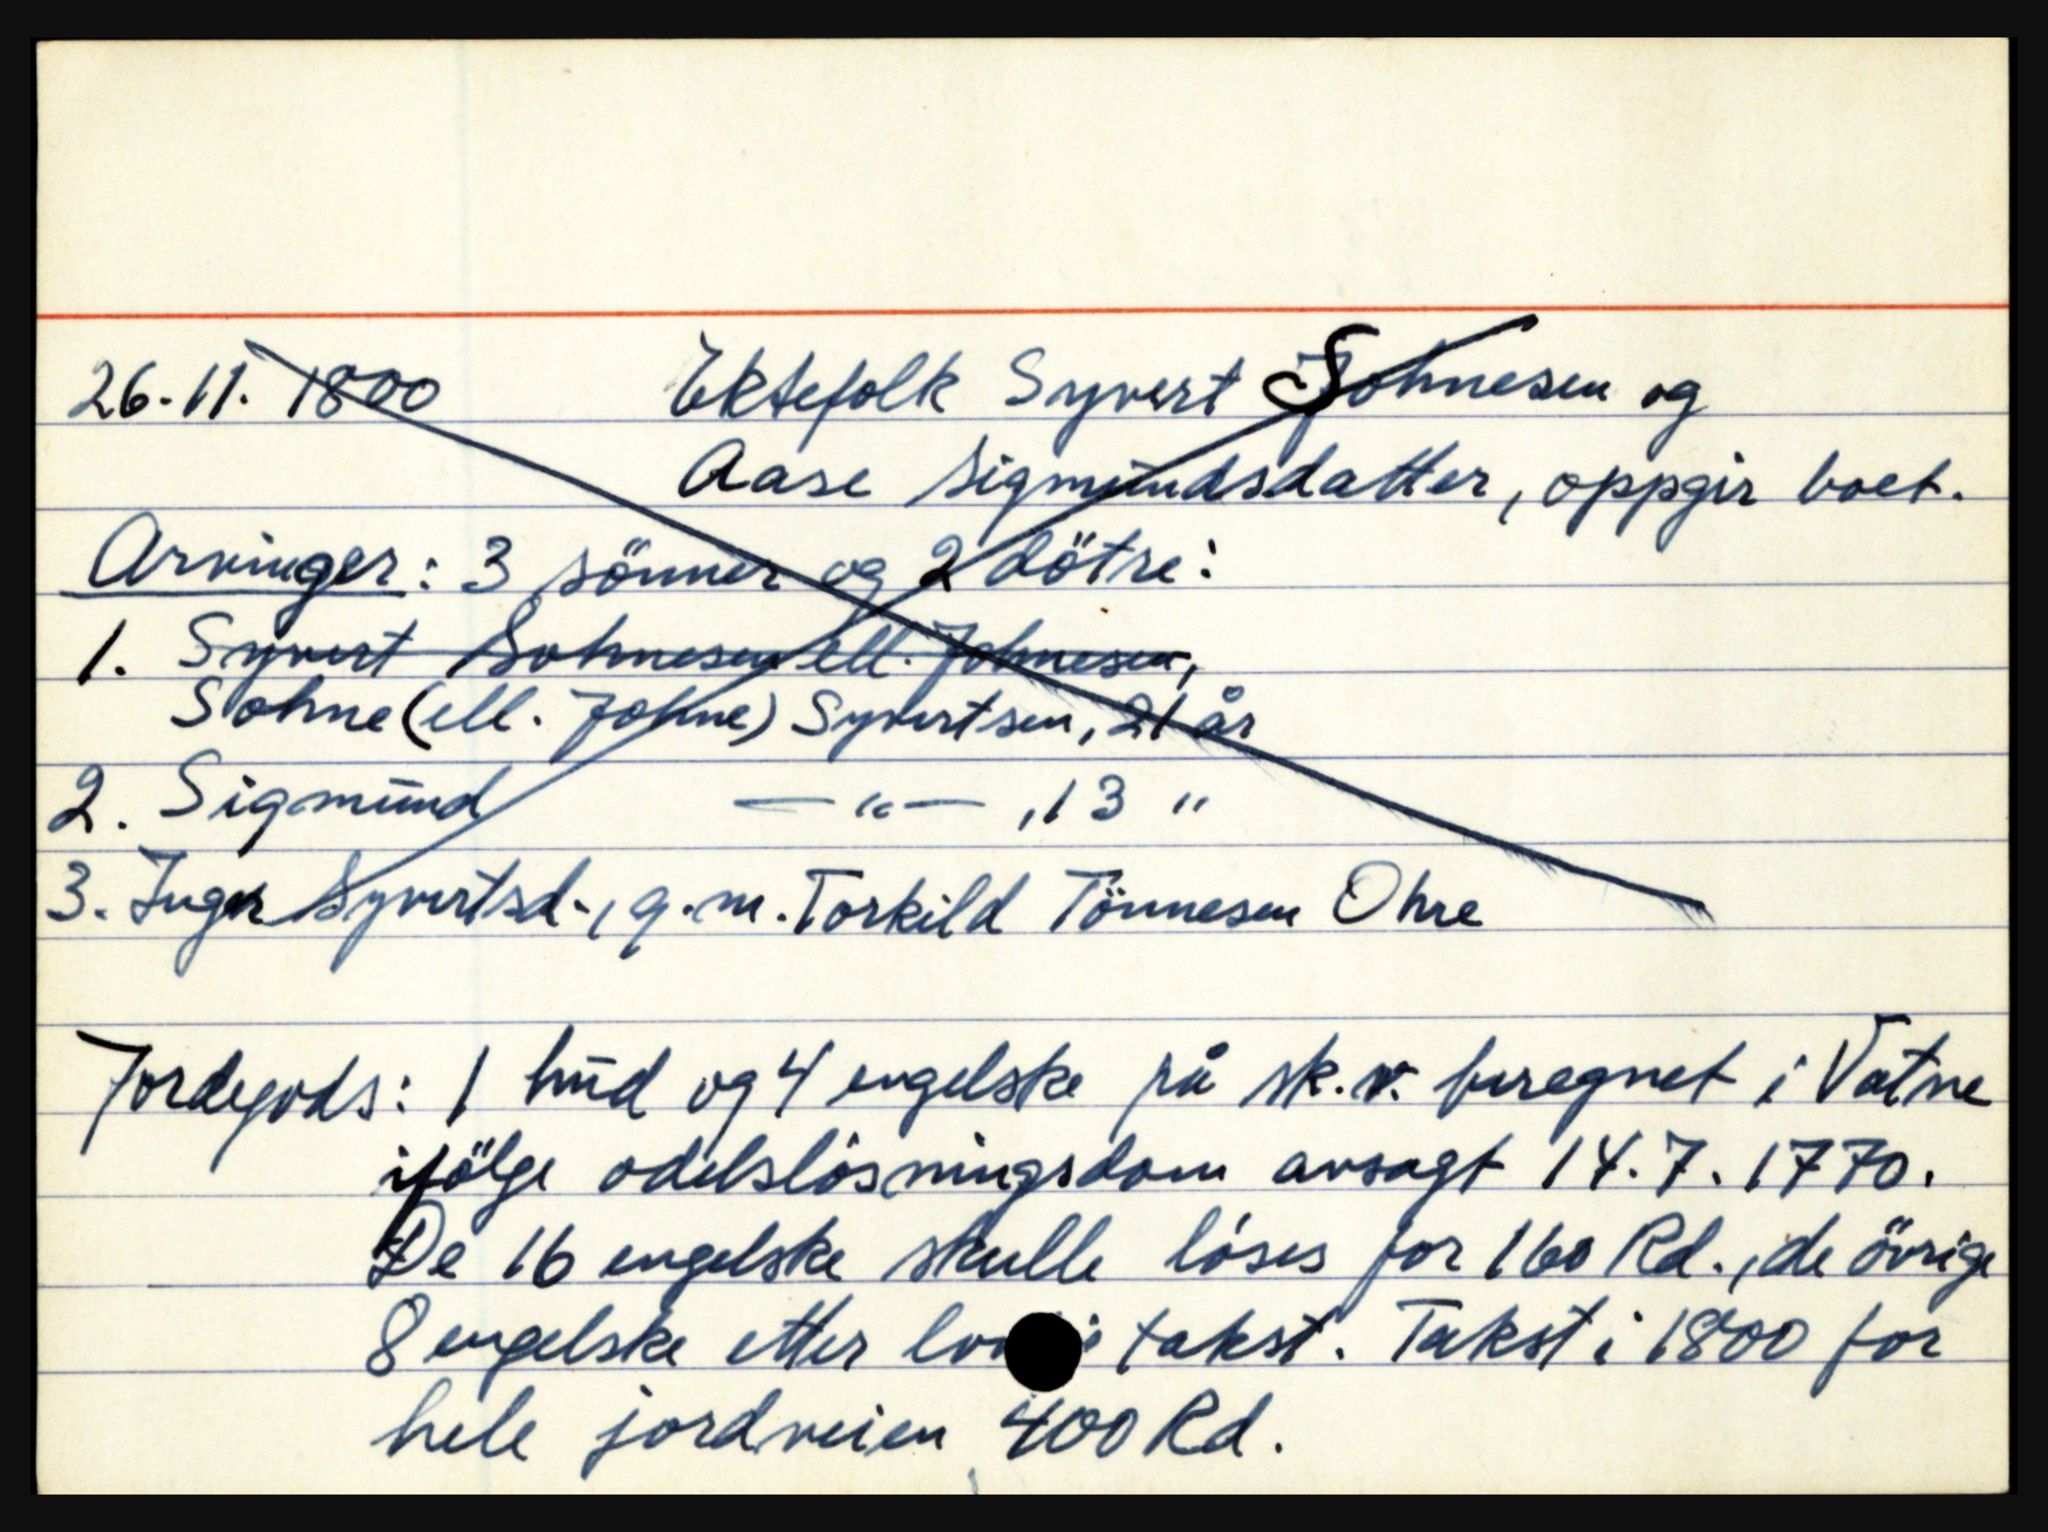 26.11. 1800 Ektefolk Syvert Sohnesen og
Aase Sigmundsdatter, oppgir boet.
Arvinger: 3 sönner og 2 dötre:
1. Syvert Sohnesen ell. Johnesen,
Sohne (ell. Johne) Syvertsen, 21 år
2. Sigmund — " — , 13 "
3. Inger Syvertsd., g.m. Torkild Tönnesen Ohre
Jordegods: 1 hud og 4 engelske på sk.v. beregnet i Vatne
ifölge odelslösningsdom avsagt 14.7.1770.
De 16 engelske skulle löses for 160 Rd., de övrige
8 engelske etter takst. Takst i 1800 for
hele jordveien 400 Rd.